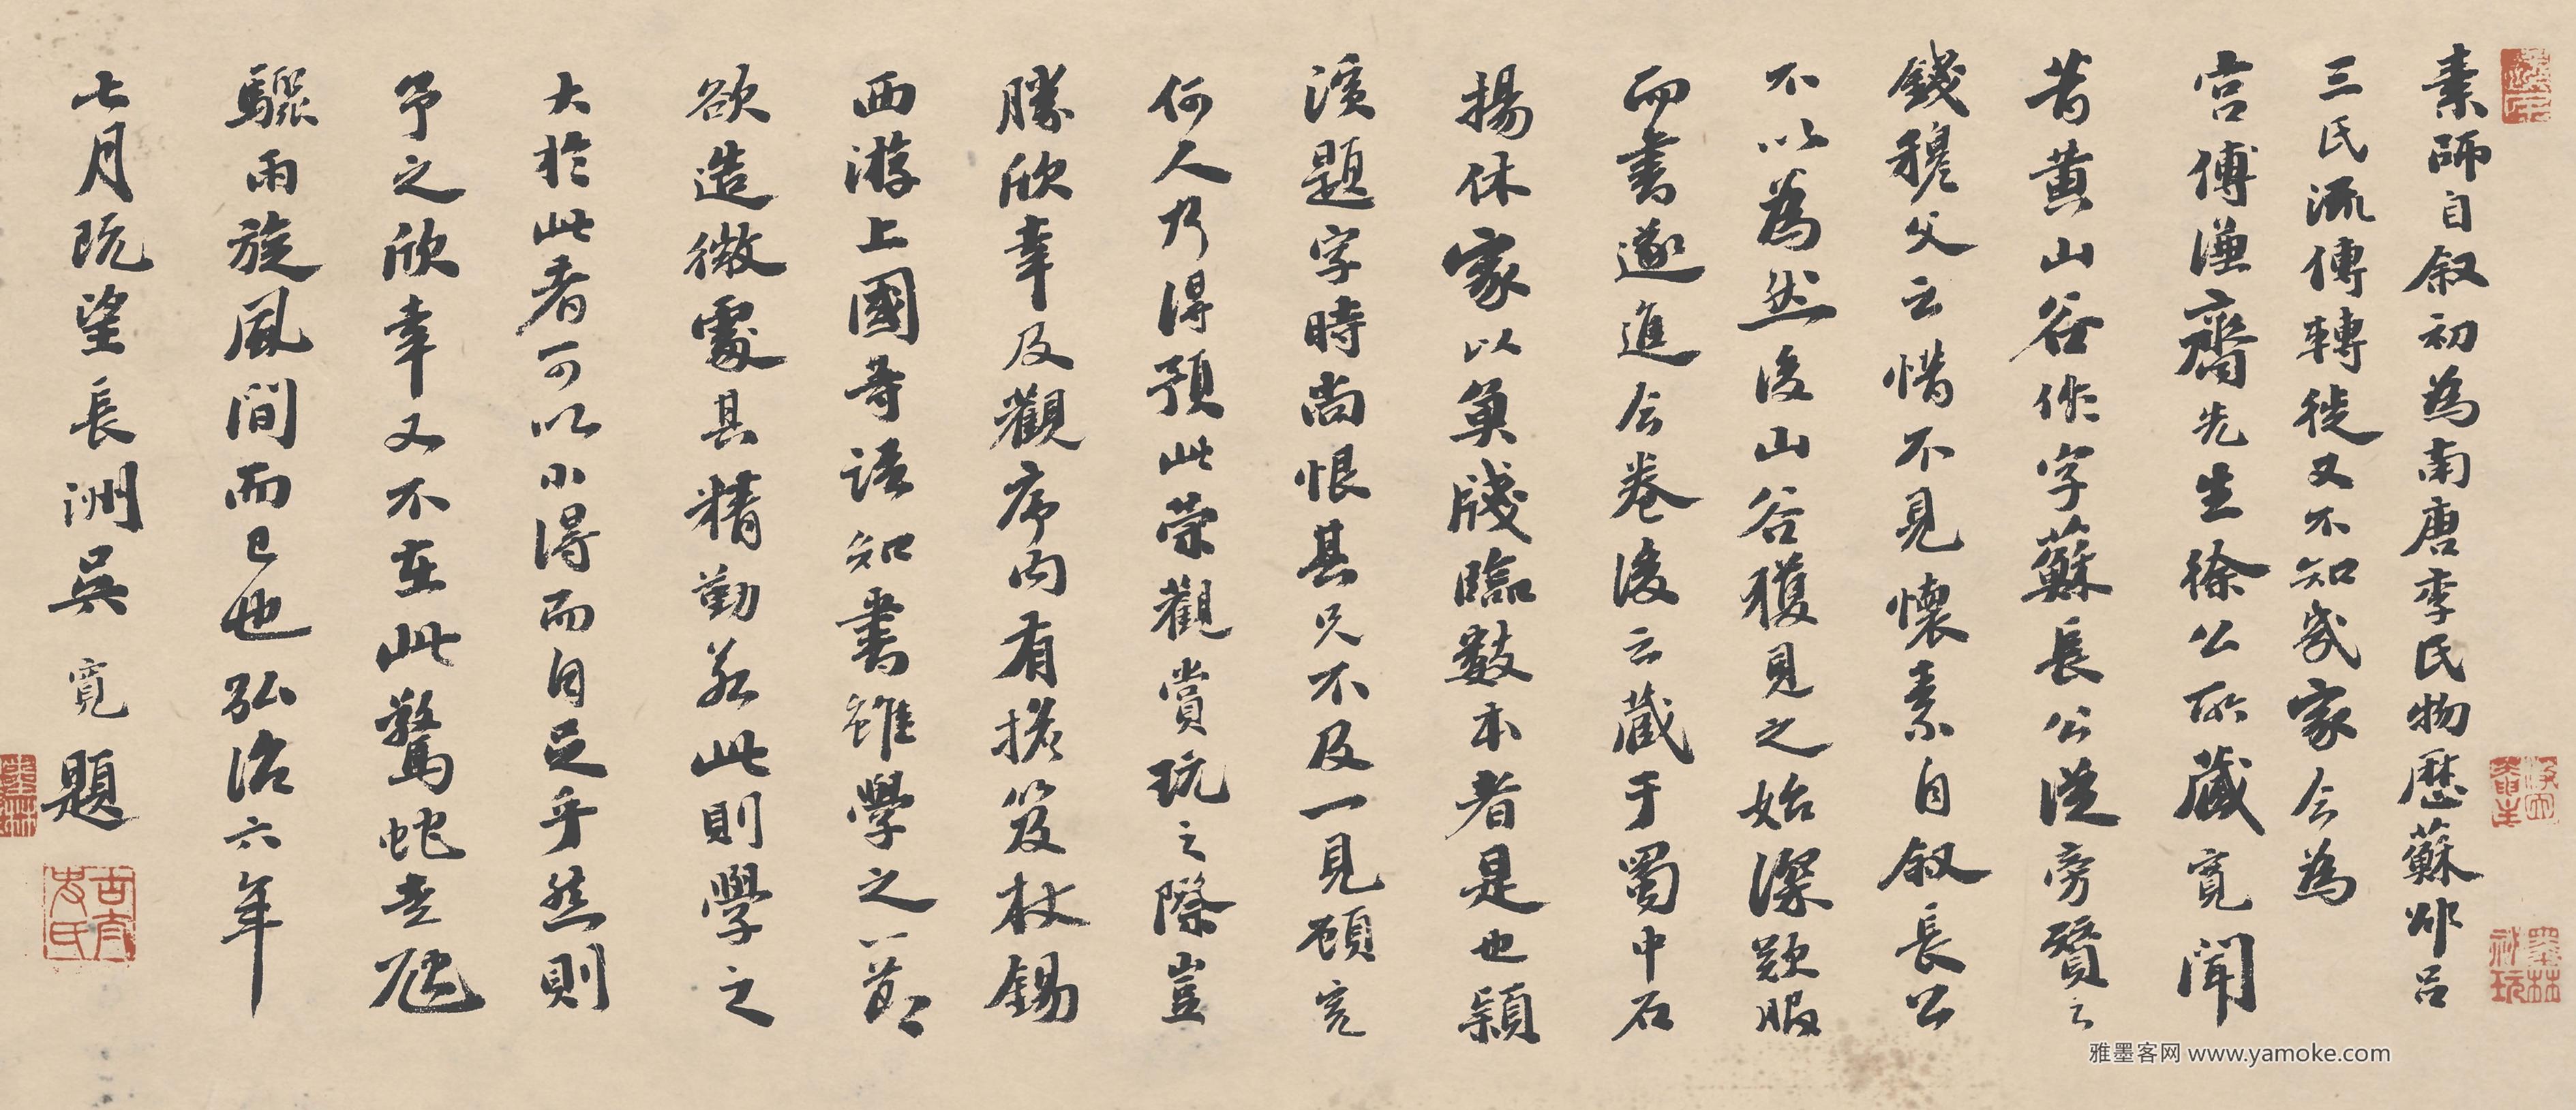 素師自叙初為南唐李氏物歷蘇邵呂
三氏流傳轉徙又不知幾家今為
宮傅謙齋先生徐公所藏寬聞
昔黃山谷作字蘇長公從旁贊之
錢穆父云惜不見懷素自叙長公
不以為然後山谷獲見之始深歎服
而書遂進今卷後云藏于蜀中石
揚休家以魚牋臨數本者是也潁
濱題字時尚恨其兄不及一見顧寬
何人乃得預此榮觀賞玩之際豈
勝欣幸及觀序內有擔笈杖錫
西游上國等語知書雖學之一節
欲造微處其精勤若此則學之
大於此者可以小得而自足乎然則
予之欣幸又不在此驚蛇走虺
驟雨旋風間而已也弘治六年
七月既望長洲吳寬題
雅墨客网 www.yamoke.com